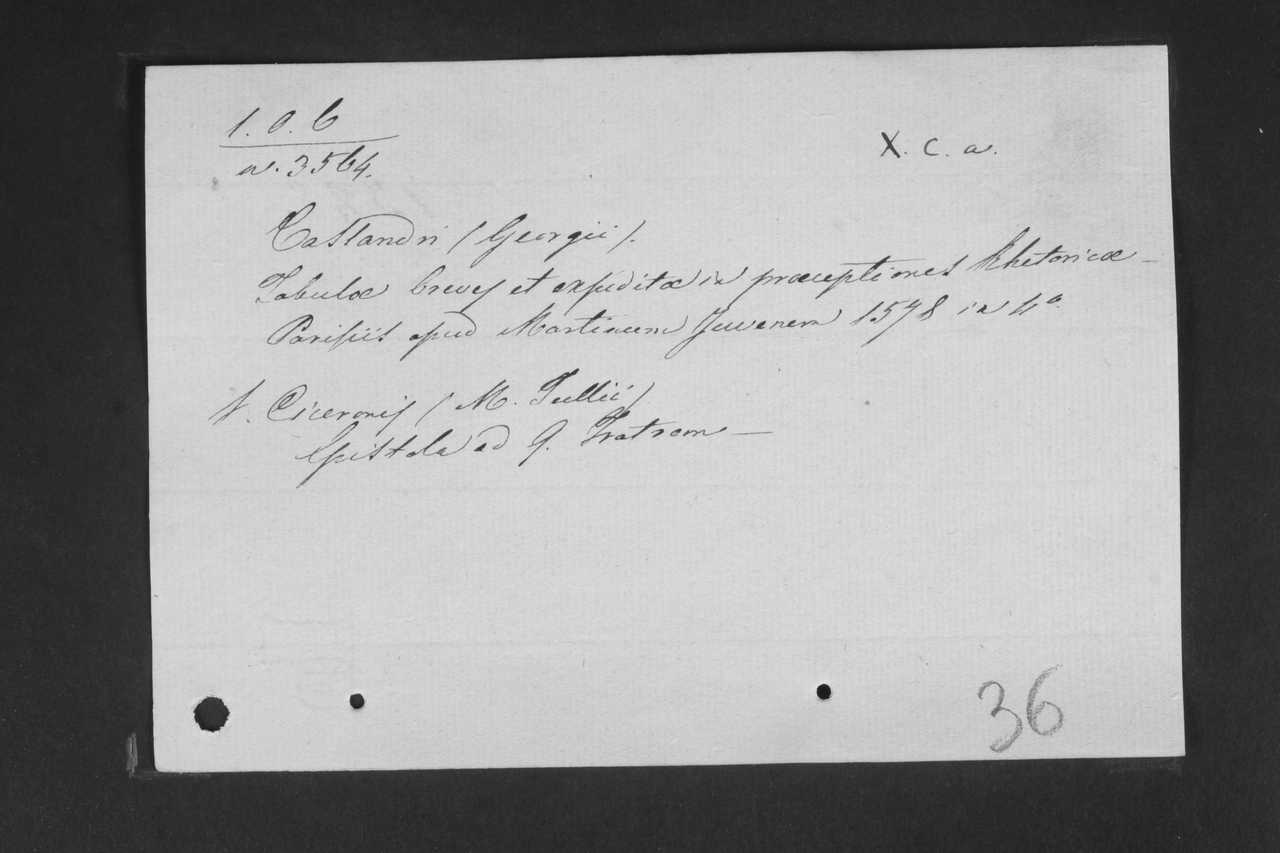 1. o. 6
a. 3564.
X. c. a.
Cassandri (Georgii).
Tabulæ breves et expeditæ in præceptiones Rhetoricæ —
Parisiis apud Martinum Juvenem 1578 in 4°
V. Ciceronis (M. Tullii)
Epistola ad Q. Fratrem —
36